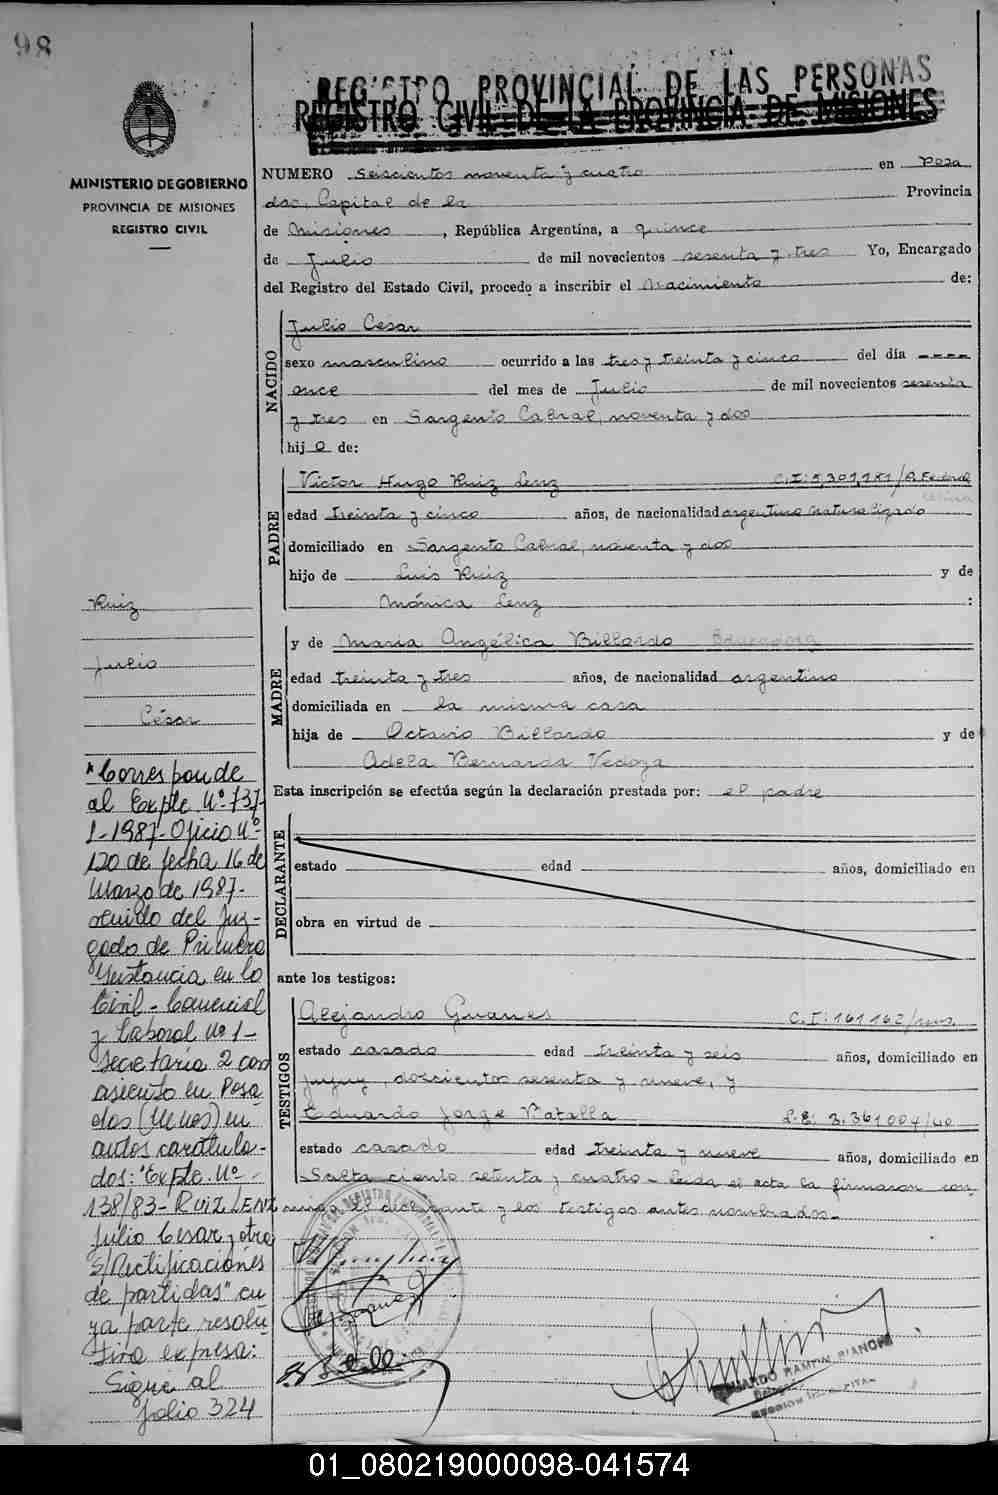 98
REGISTRO PROVINCIAL DE LAS PERSONAS
REGISTRO CIVIL DE LA PROVINCIA DE MISIONES
MINISTERIO DE GOBIERNO
PROVINCIA DE MISIONES
REGISTRO CIVIL
NUMERO Seiscientos noventa y cuatro en Posa
das, Capital de la Provincia
de Misiones, República Argentina, a quince
de Julio de mil novecientos sesenta y tres Yo, Encargado
del Registro del Estado Civil, procedo a inscribir el Nacimiento de:
NACIDO
Julio Cesar
sexo masculino ocurrido a las tres y treinta y cinco del día ----
once del mes de Julio de mil novecientos sesenta
y tres en Sargento Cabral, noventa y dos
hijo de:
PADRE
Victor Hugo Ruiz Lenz C.I: 5,301,181/P. Federal
edad treinta y cinco años, de nacionalidad argentino naturalizado
domiciliado en Sargento Cabral, noventa y dos
hijo de Luis Ruiz y de
Mónica Lenz :
MADRE
y de Maria Angélica Billardo
edad treinta y tres años, de nacionalidad argentina
domiciliada en la misma casa
hija de Octavio Billardo y de
Adela Bernarda Vedoya
Esta inscripción se efectúa según la declaración prestada por: el padre
DECLARANTE
estado edad años, domiciliado en
obra en virtud de
ante los testigos:
TESTIGOS
Alejandro Guanes C.I: 161162/mns.
estado casado edad treinta y seis años, domiciliado en
Jujuy, doscientos sesenta y nueve, y
Eduardo Jorge Batalla L.E: 3.361004/40
estado casado edad treinta y nueve años, domiciliado en
Salta ciento setenta y cuatro - Leida el acta la firmaron con-
migo el declarante y los testigos antes nombrados.-
Ruiz
Julio
César
*Corresponde
al Expte. Nº 737-
1-1987-Oficio Nº
120 de fecha 16 de
Marzo de 1987-
venido del Juz-
gado de Primera
Instancia en lo
Civil - Comercial
y Laboral Nº 1-
Secretaria 2 con
asiento en Posa-
das (Mnes) en
autos caratula-
dos: "Expte. Nº
138/83- RUIZ LENZ
Julio Cesar y otra
S/Rectificaciones
de partidas" cu-
ya parte resolu-
tiva expresa:
Sigue al
folio 324
EDUARDO RAMON BIANCHI
01_080219000098-041574